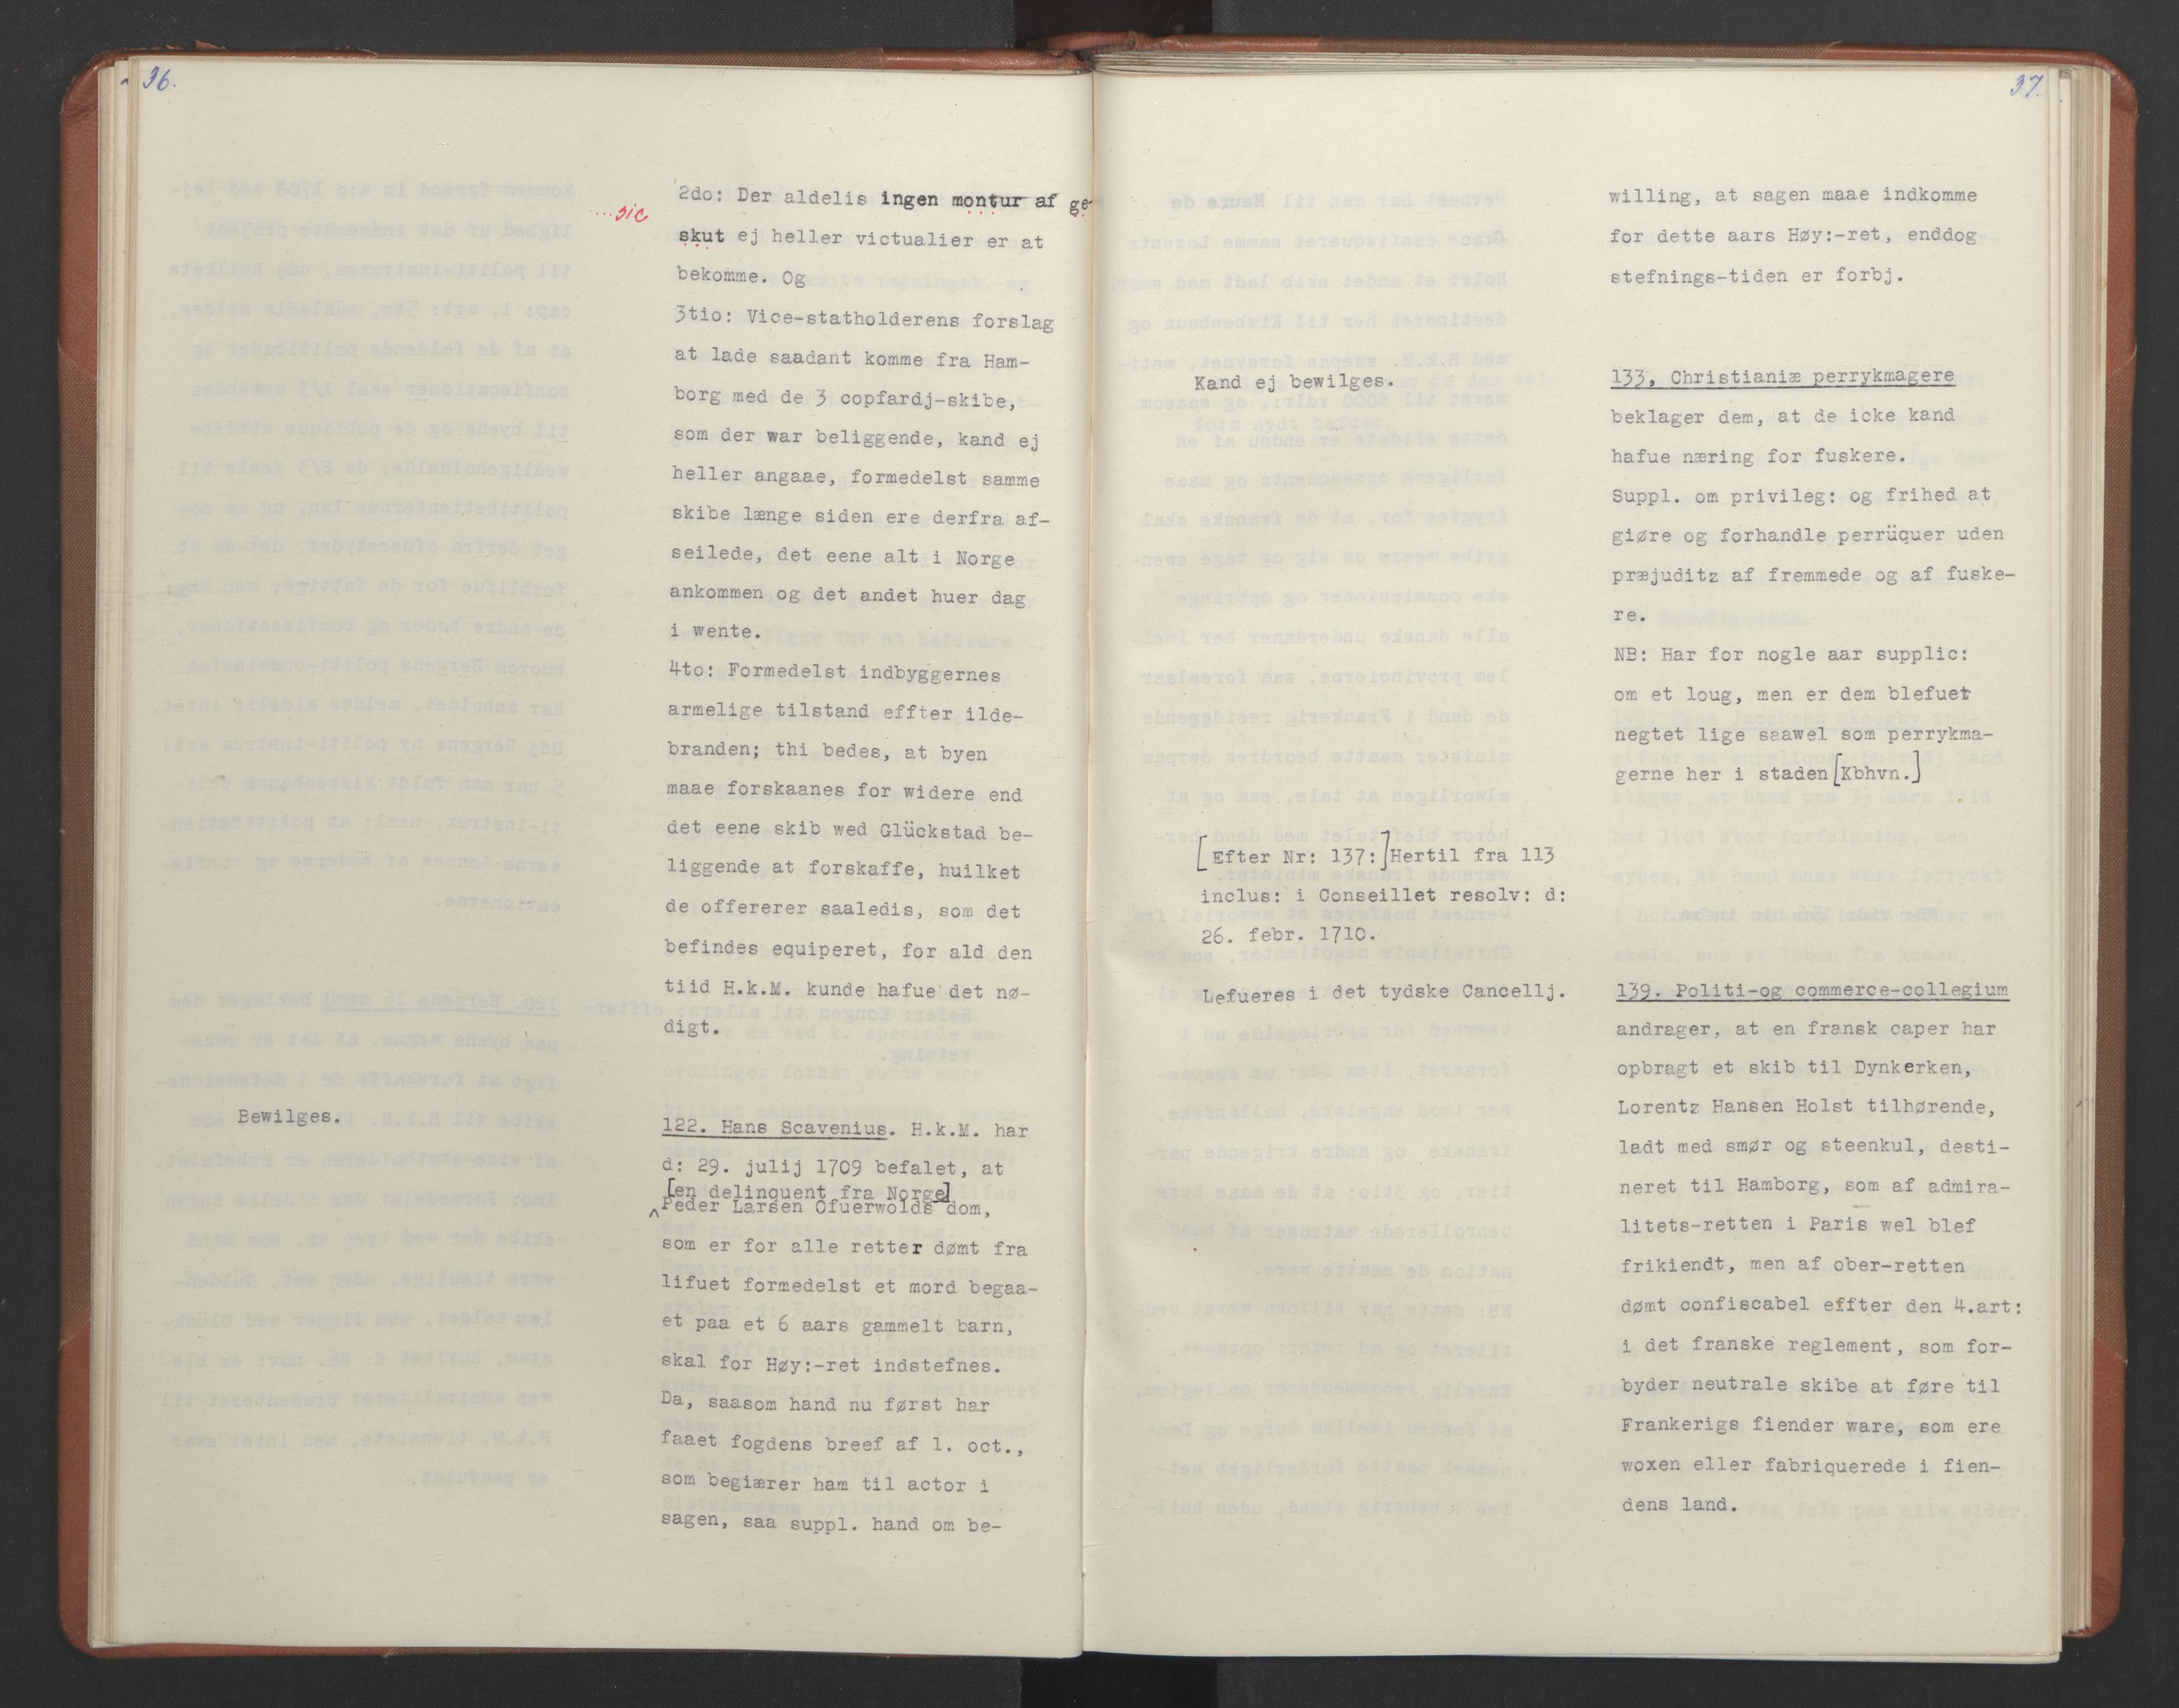 36.
...sic
2do: Der aldelis ingen montur af ge-
skut ej heller victualier er at
bekomme. Og
3tio: Vice-statholderens forslag
at lade saadant komme fra Ham-
borg med de 3 copfardj-skibe,
som der war beliggende, kand ej
heller angaae, formedelst samme
skibe længe siden ere derfra af-
seilede, det eene alt i Norge
ankommen og det andet huer dag
i wente.
4to: Formedelst indbyggernes
armelige tilstand effter ilde-
branden; thi bedes, at byen
maae forskaanes for widere end
det eene skib wed Glückstad be-
liggende at forskaffe, huilket
de offererer saaledis, som det
befindes equiperet, for ald den
tiid H.k.M. kunde hafue det nø-
digt.
Bewilges.
122. Hans Scavenius. H.k.M. har
d: 29. julij 1709 befalet, at
[en delinquent fra Norge]
^Peder Larsen Ofuerwolds dom,
som er for alle retter dømt fra
lifuet formedelst et mord begaa-
et paa et 6 aars gammelt barn,
skal for Høy:-ret indstefnes.
Da, saasom hand nu først har
faaet fogdens breef af 1. oct.,
som begiærer ham til actor i
sagen, saa suppl. hand om be-
37.
willing, at sagen maae indkomme
for dette aars Høy:-ret, enddog
stefnings-tiden er forbj.
Kand ej bewilges.
133, Christianiæ perrykmagere
beklager dem, at de icke kand
hafue næring for fuskere.
Suppl. om privileg: og frihed at
giøre og forhandle perrüquer uden
præjuditz af fremmede og af fuske-
re.
NB: Har for nogle aar supplic:
om et loug, men er dem blefuet
negtet lige saawel som perrykma-
gerne her i staden[Kbhvn.]
[Efter Nr: 137:]Hertil fra 113
inclus: i Conseillet resolv: d:
26. febr. 1710.
Lefueres i det tydske Cancellj.
139. Politi-og commerce-collegium
andrager, at en fransk caper har
opbragt et skib til Dynkerken,
Lorentz Hansen Holst tilhørende,
ladt med smør og steenkul, desti-
neret til Hamborg, som af admira-
litets-retten i Paris wel blef
frikiendt, men af ober-retten
dømt confiscabel effter den 4.art:
i det franske reglement, som for-
byder neutrale skibe at føre til
Frankerigs fiender ware, som ere
woxen eller fabriquerede i fien-
dens land.